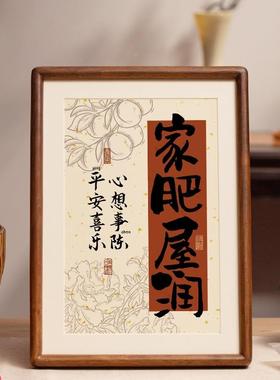 家肥屋润
心想事陈
平安喜乐